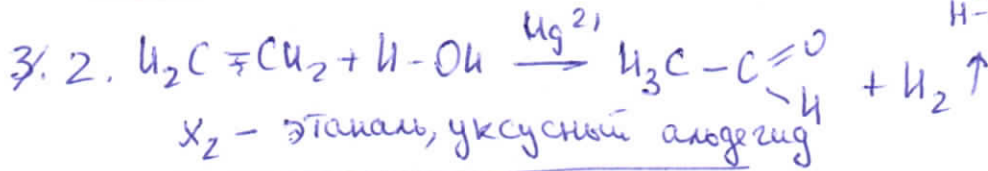 H-
3. 2. H₂C=CH₂ + H-OH —Hg²⁾→ H₃C-C=O + H₂↑
H
X₂ - этаналь, уксусный альдегид